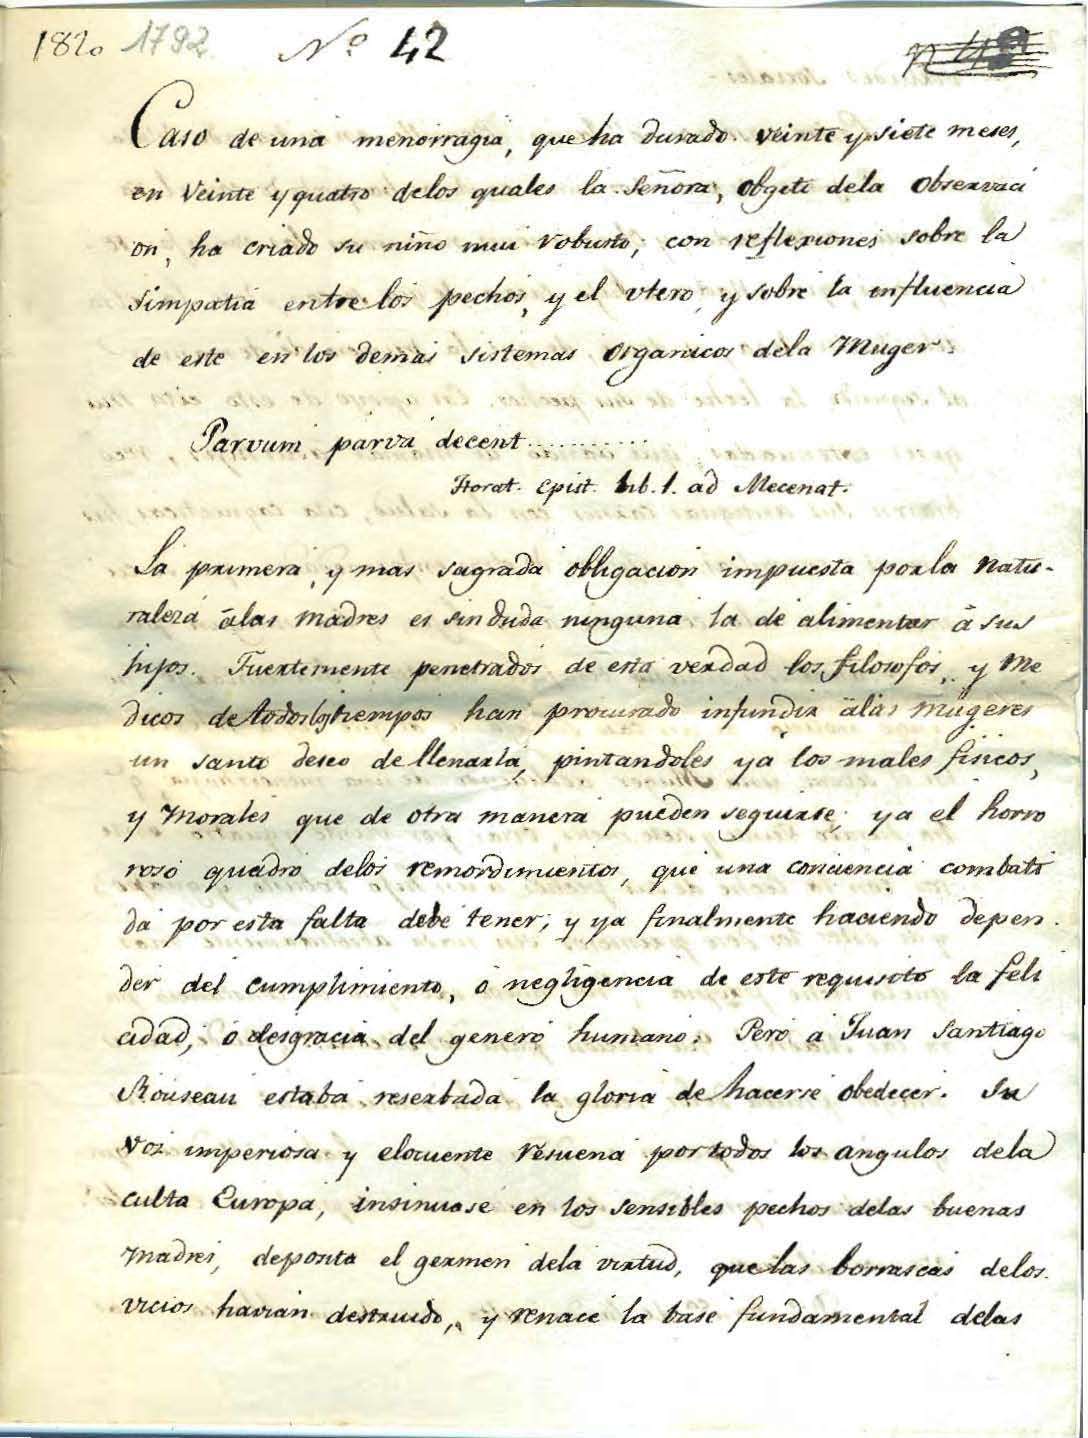 1820 1792 Nº 42 n 49
Caso de una menorragia, que ha durado veinte y siete meses,
en veinte y quatro delos quales la Señora, objeto dela observaci
on, ha criado su niño mui robusto; con reflexiones sobre la
simpatia entre los pechos, y el utero, y sobre la influencia
de este en los demas sistemas organicos dela Muger.
Parvum parva decent..........
Horat. Epist. Lib. 1. ad Mecenat.
La primera, y mas sagrada obligacion impuesta por la natu-
raleza álas madres es sin duda ninguna la de alimentar á sus
hijos. Fuertemente penetrados de esta verdad los filosofos, y Me
dicos de todos los tiempos han procurado infundir álas mugeres
un santo deseo de llenarla, pintandoles ya los males fisicos,
y Morales que de otra manera pueden seguirse; ya el horro
roso quadro delos remordimientos, que una conciencia combati
da por esta falta debe tener; y ya finalmente haciendo depen
der del cumplimiento, o negligencia de este requisito la feli
cidad, o desgracia del genero humano. Pero a Juan Santiago
Rouseau estaba reserbada la gloria de hacerse obedecer. Su
voz imperiosa y elocuente resuena por todos los angulos dela
culta Europa, insinuase en los sensibles pechos delas buenas
Madres, deposita el germen dela virtud, que las borrascas delos
vicios havian destruido, y renace la base fundamental delas